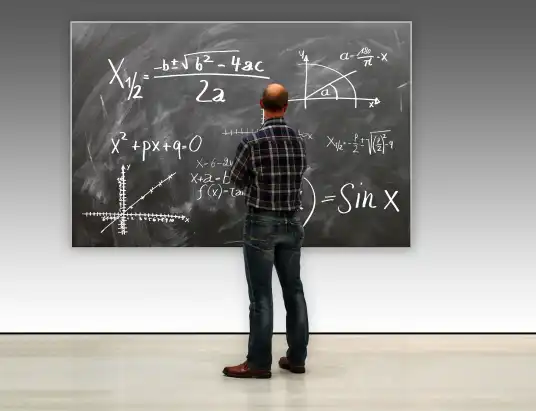 X1/2 = -b±√b²-4ac / 2a
y
a = 180/π · x
a
x
x²+px+q=0
X1/2 = -p/2 ± √(p/2)²-q
x-6-2
x+a=t
f(x)=ta
y
x
x
) = Sin x